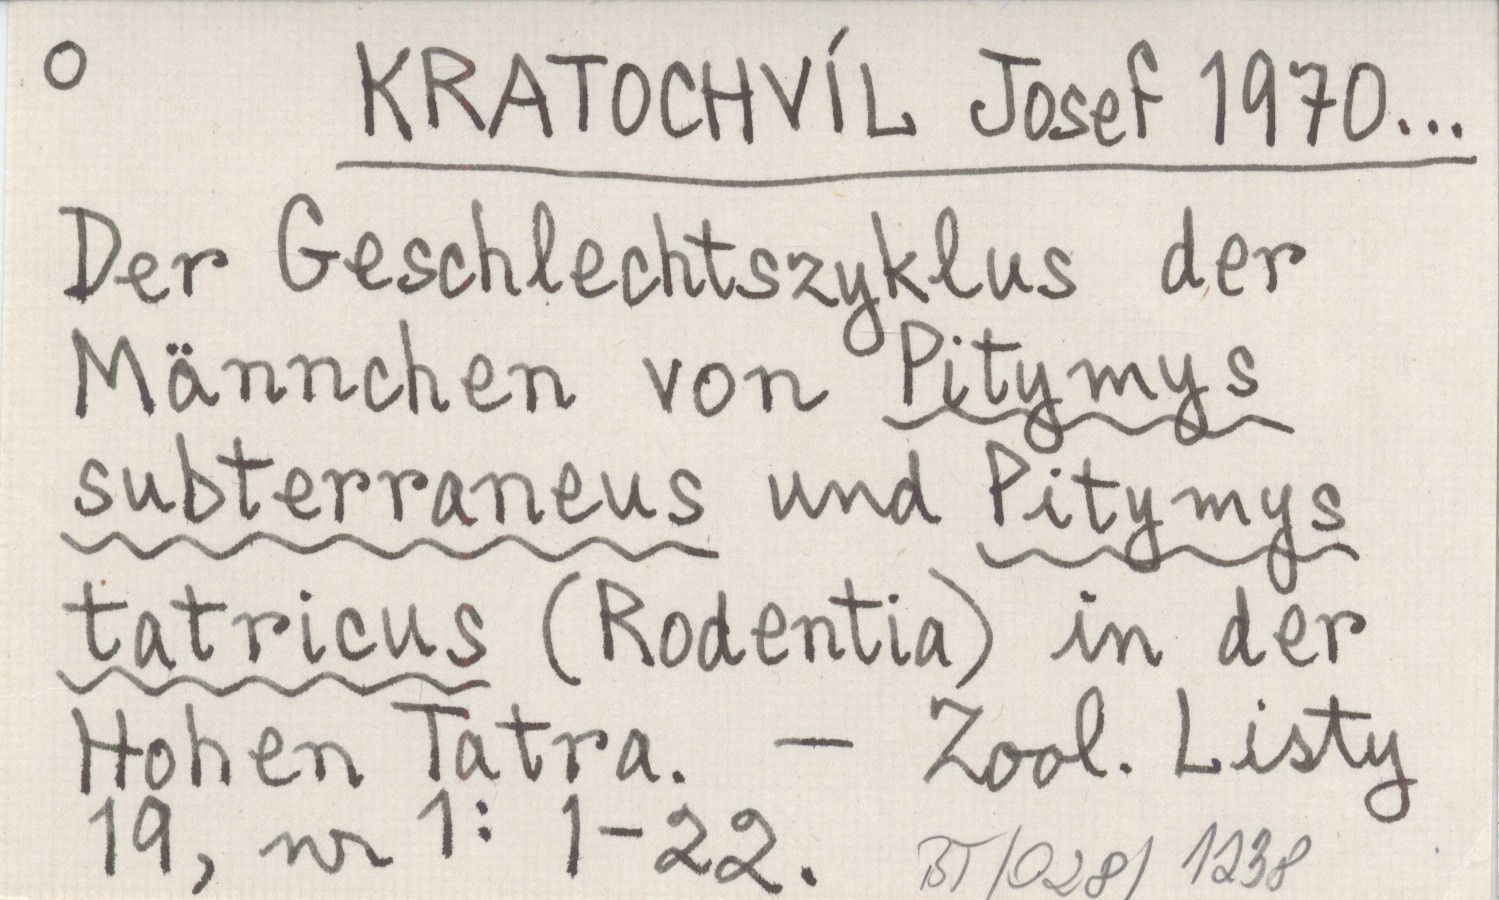 o KRATOCHVÍL Josef 1970...
Der Geschlechtszyklus der
Männchen von Pitymys
subterraneus und Pitymys
tatricus (Rodentia) in der
Hohen Tatra. — Zool. Listy
19, nr 1: 1-22. BT/028/ 1238